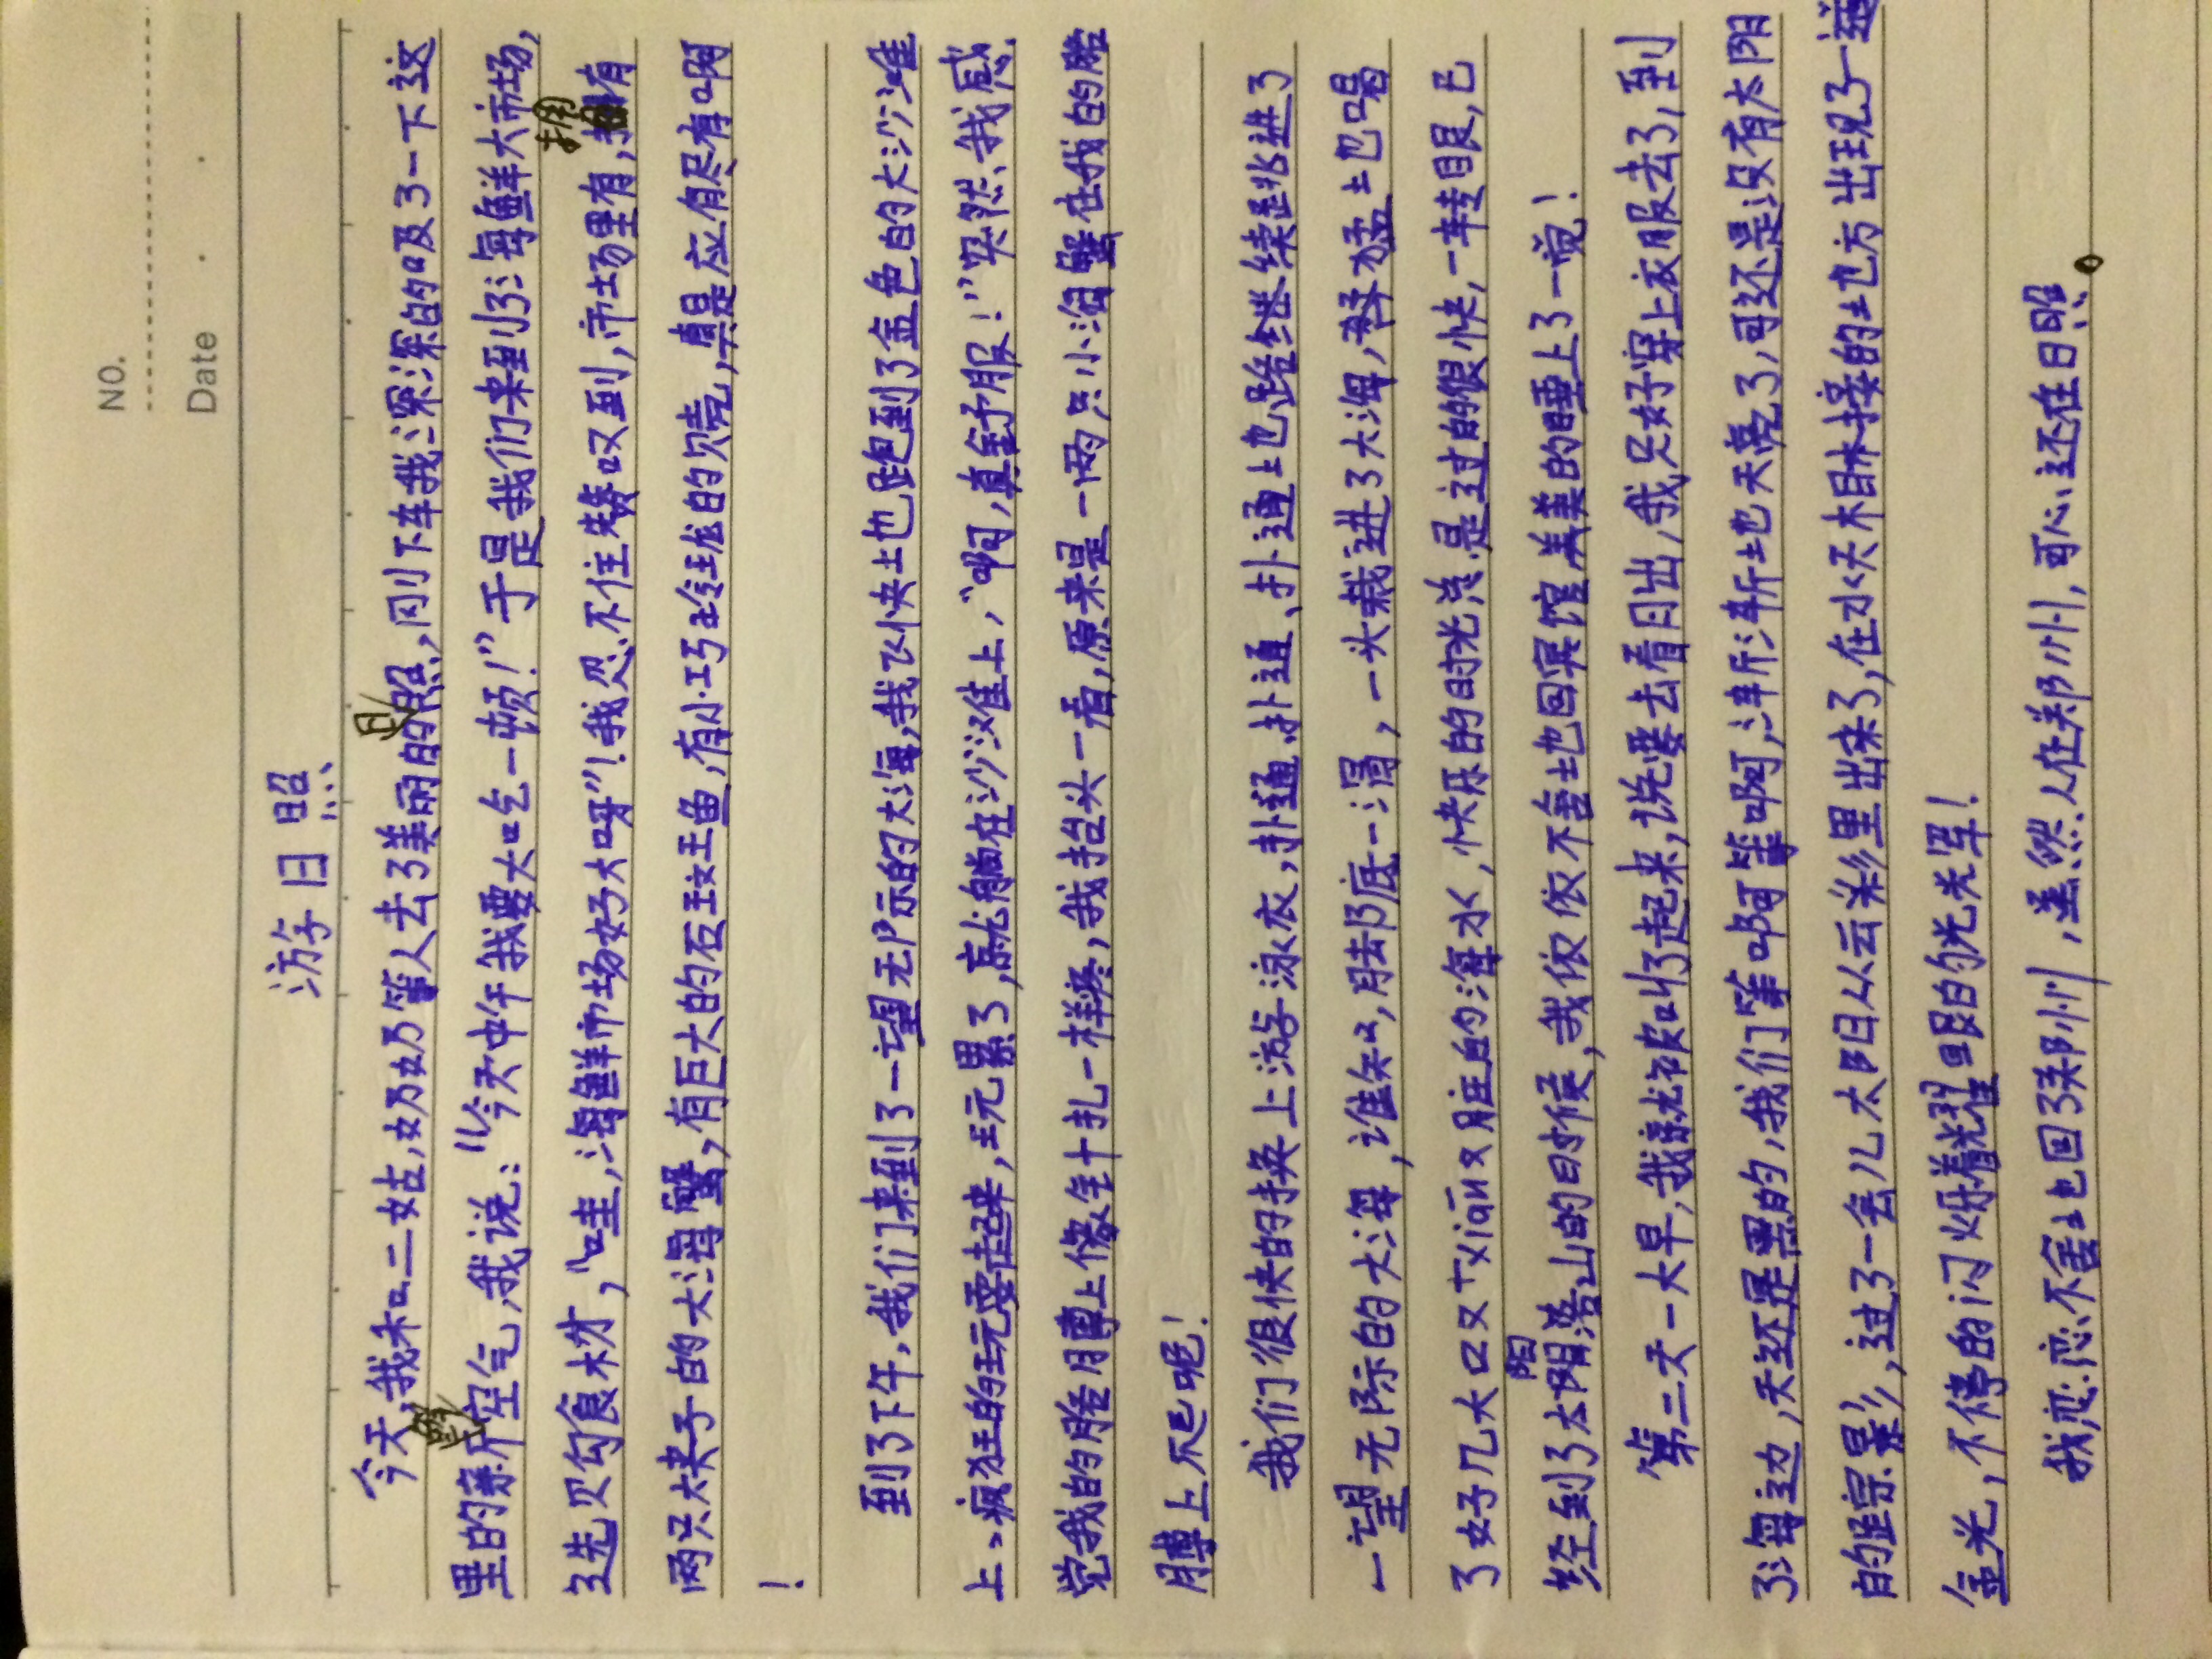 NO.
Date . .
游日照
今天,我和二姑,奶奶等人去了美丽的日照,刚下车我深深的吸了一下这
里的新鲜空气,我说:“今天中午我要大吃一顿!”于是我们来到了海鲜大市场,
选购食材,“哇,海鲜市场好大呀”!我忍不住赞叹到,市场里有,拥有
两只大夹子的大海蟹,有巨大的石斑鱼,有小巧玲珑的贝壳,真是应有尽有啊
!
到了下午,我们来到了一望无际的大海,我飞快地跑到了金色的大沙滩
上,疯狂的玩耍起来,玩累了,就躺在沙滩上,“啊,真舒服!”突然,我感
觉我的胳膊上像针扎一样疼,我抬头一看,原来是一两只小海蟹在我的胳
膊上爬呢!
我们很快的换上游泳衣,扑通、扑通、扑通、扑通地继续跳进了
一望无际的大海,谁知,脚底一滑,一头栽进了大海,猛地喝
了好几大口又 xián 又脏的海水,快乐的时光总是过的很快,一转眼,已
经到了太阳落山的时候,我依依不舍地回宾馆美美的睡上了一觉!
第二天一大早,我就被叫了起来,说要去看日出,我只好穿上衣服去了,到
了海边,天还是黑的,我们等啊等啊,渐渐地天亮了,可还是没有太阳
的踪影,过了一会儿太阳从云彩里出来了,在水天相接的地方出现了一道
金光,不停的闪烁着耀眼的光辉!
我恋恋不舍地回了郑州,虽然人在郑州,可心还在日照。